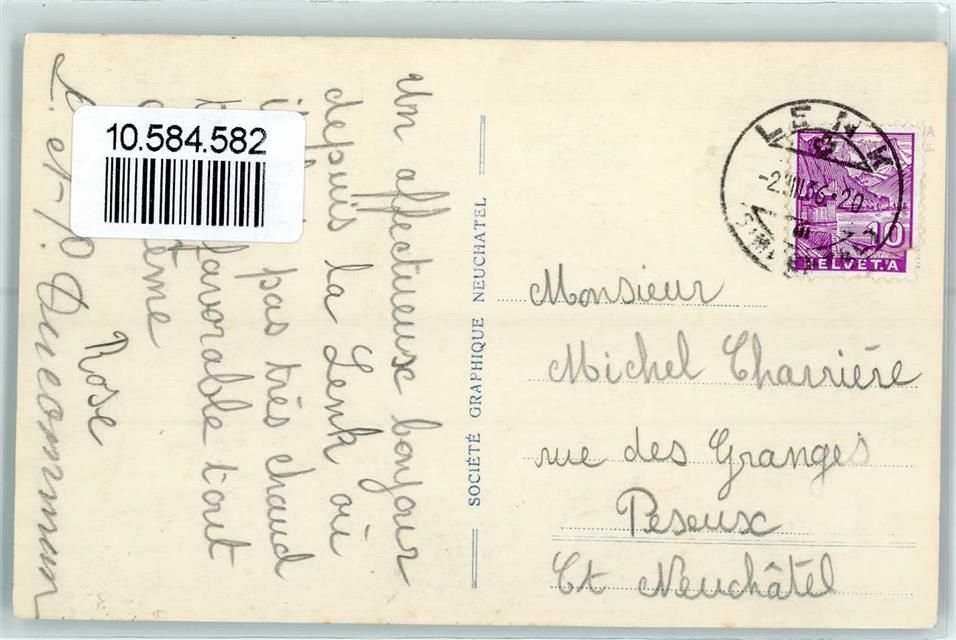 Un affectueux bonjour
depuis la Lenk où
pas très chaud
favorable tout
Rose
L. et P. Ducommun
10.584.582
SOCIÉTÉ GRAPHIQUE NEUCHATEL
LENK
10
HELVETIA
Monsieur
Michel Charrière
rue des Granges
Peseux
Ct Neuchâtel